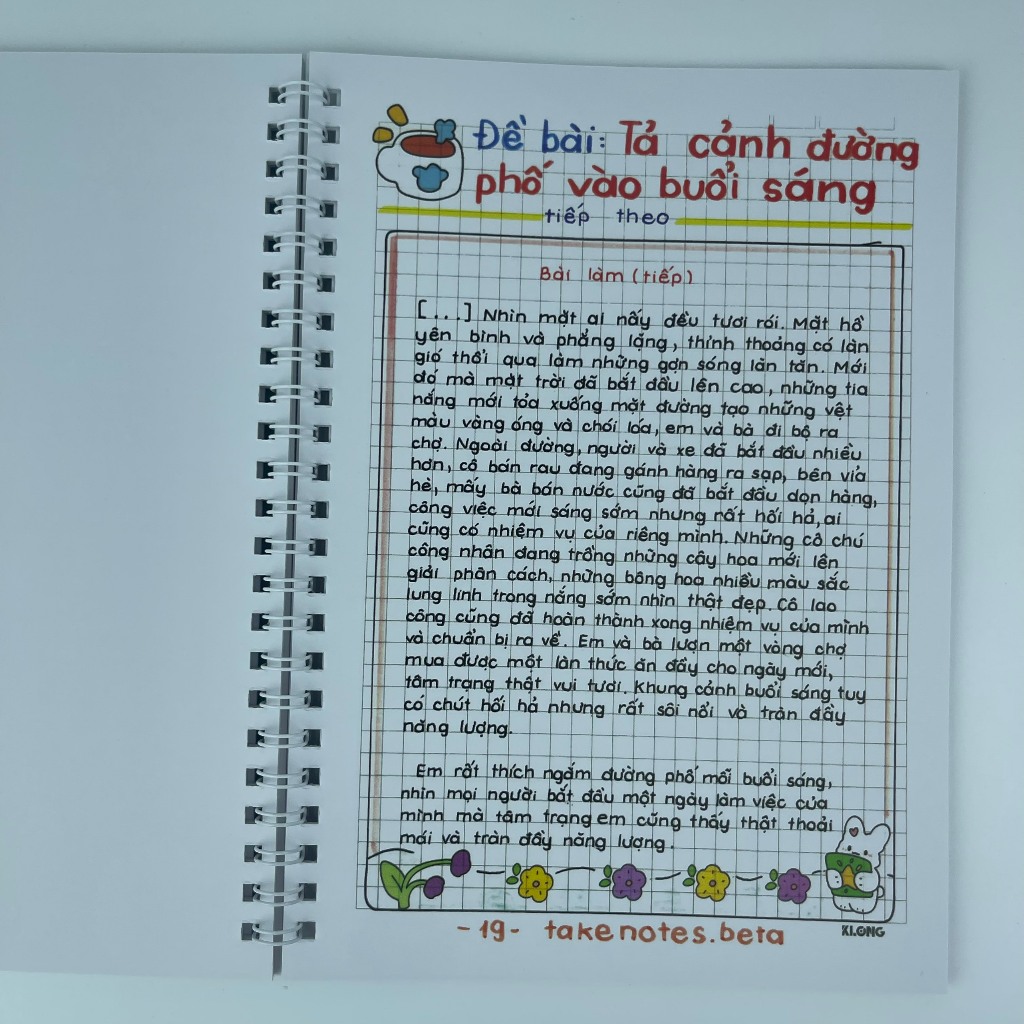 Đề bài: Tả cảnh đường
phố vào buổi sáng
tiếp theo
Bài làm (tiếp)
[...] Nhìn mặt ai nấy đều tươi rói. Mặt hồ
yên bình và phẳng lặng, thỉnh thoảng có làn
gió thổi qua làm những gợn sóng lăn tăn. Mới
đó mà mặt trời đã bắt đầu lên cao, những tia
nắng mới tỏa xuống mặt đường tạo những vệt
màu vàng óng và chói lóa, em và bà đi bộ ra
chợ. Ngoài đường, người và xe đã bắt đầu nhiều
hơn, cô bán rau đang gánh hàng ra sạp, bên vỉa
hè, mấy bà bán nước cũng đã bắt đầu dọn hàng,
công việc mới sáng sớm nhưng rất hối hả, ai
cũng có nhiệm vụ của riêng mình. Những cô chú
công nhân đang trồng những cây hoa mới lên
giải phân cách, những bông hoa nhiều màu sắc
lung linh trong nắng sớm nhìn thật đẹp. Cô lao
công cũng đã hoàn thành xong nhiệm vụ của mình
và chuẩn bị ra về. Em và bà lượn một vòng chợ
mua được một làn thức ăn đầy cho ngày mới,
tâm trạng thật vui tươi. Khung cảnh buổi sáng tuy
có chút hối hả nhưng rất sôi nổi và tràn đầy
năng lượng.
Em rất thích ngắm đường phố mỗi buổi sáng,
nhìn mọi người bắt đầu một ngày làm việc của
mình mà tâm trạng em cũng thấy thật thoải
mái và tràn đầy năng lượng.
-19- takenotes.beta
KI.ONG